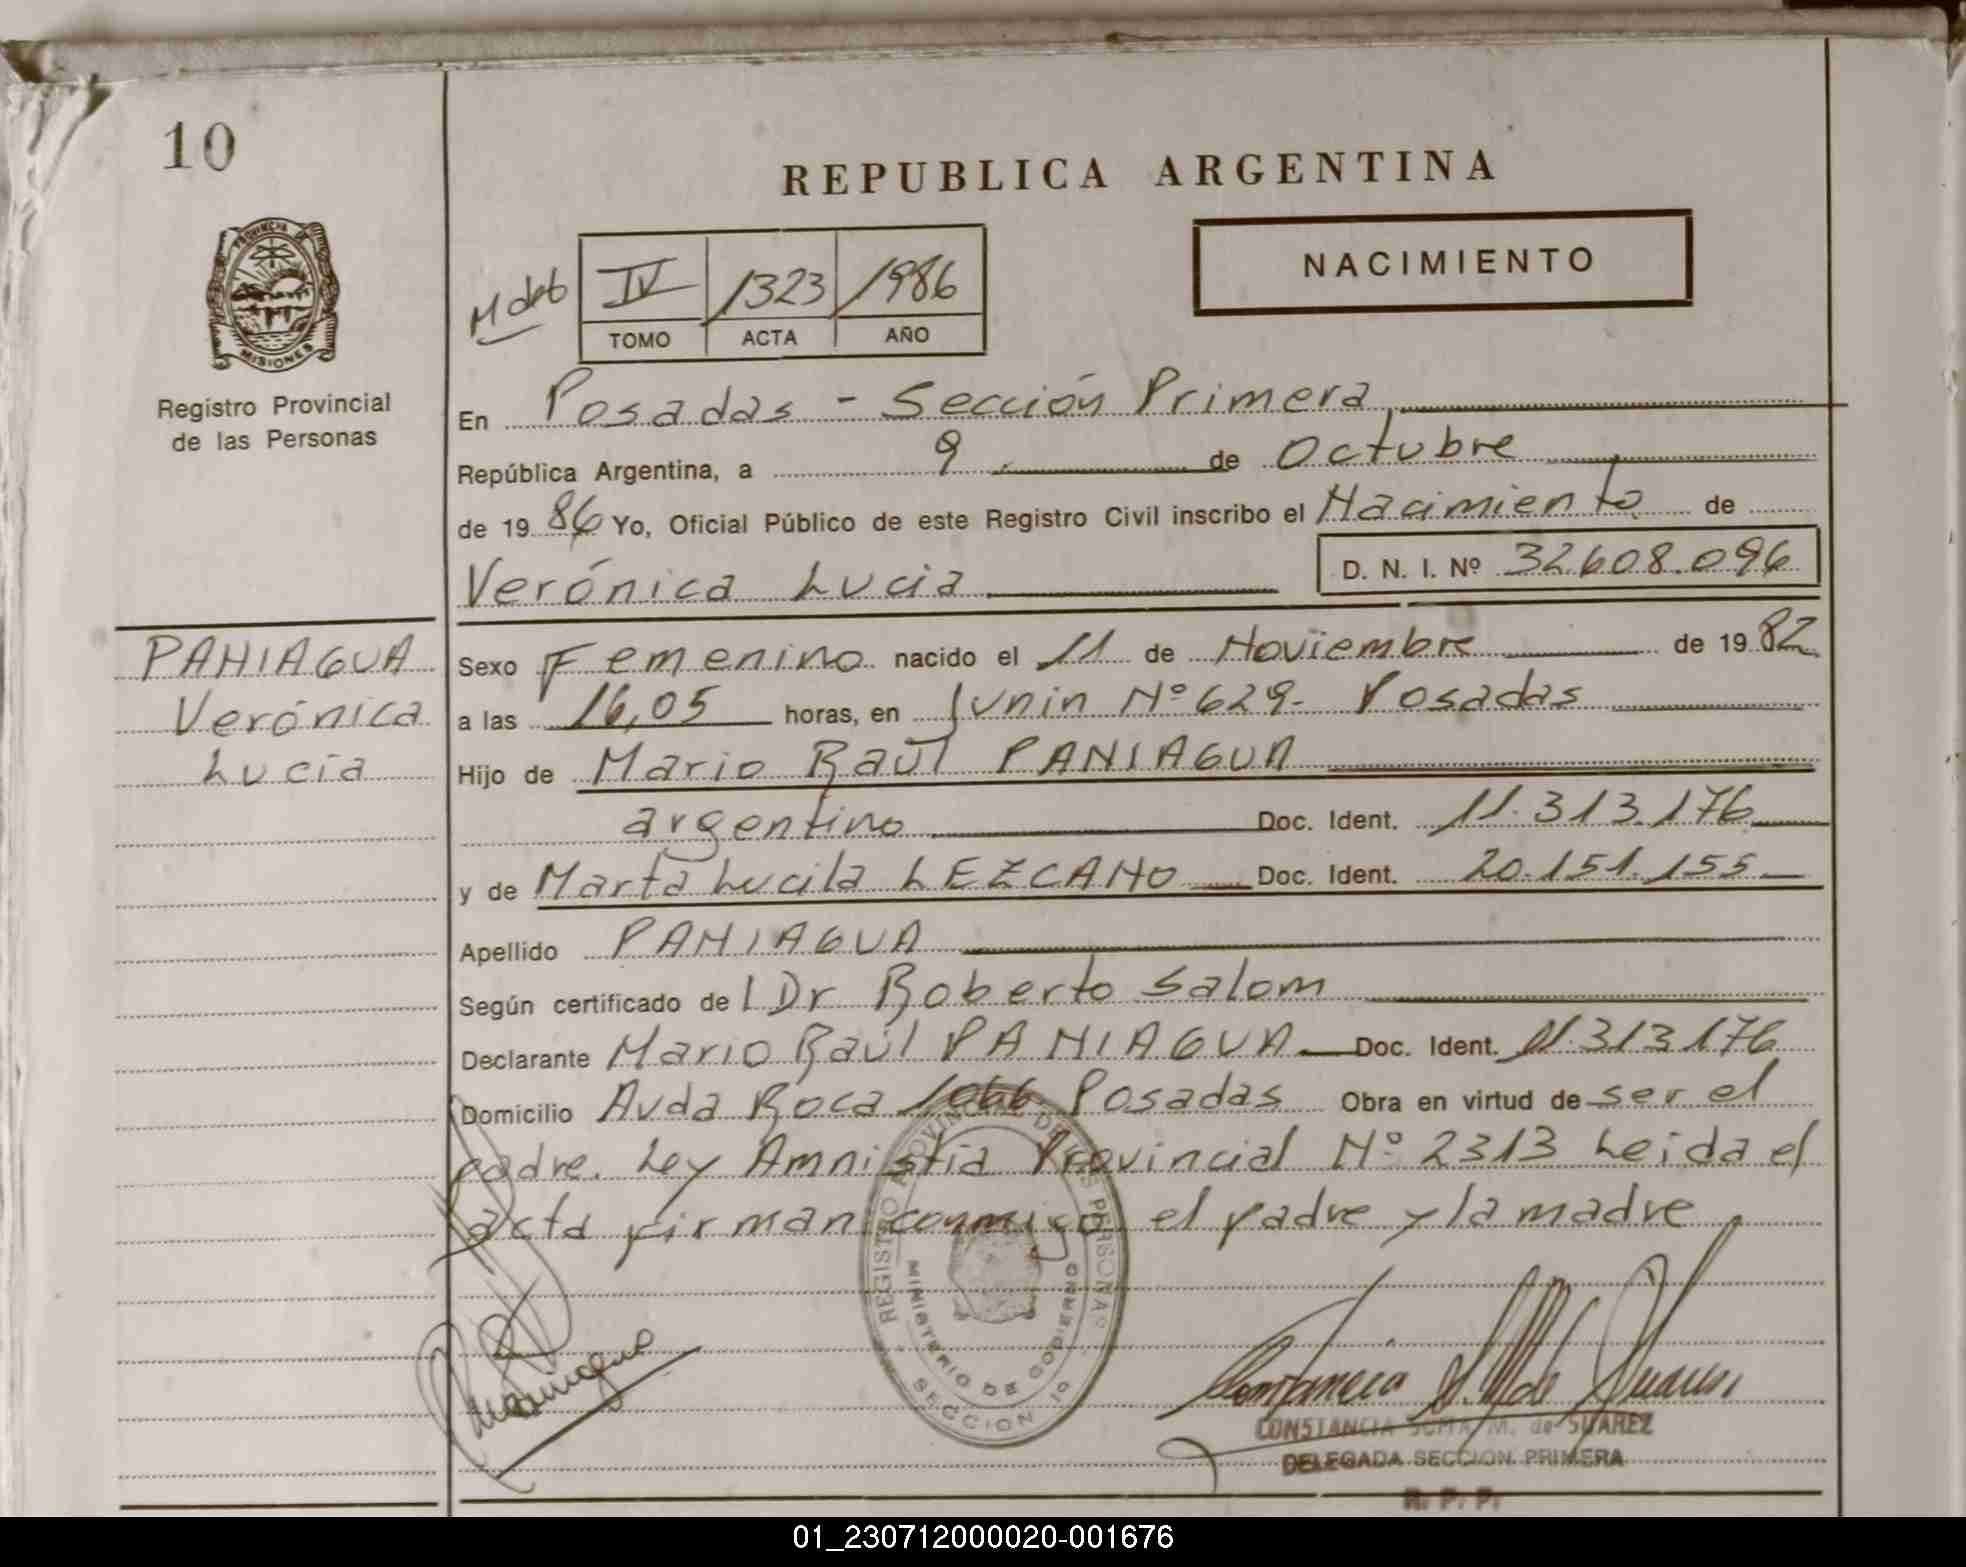 10
REPUBLICA ARGENTINA
PROVINCIA DE
MISIONES
IV 1323 1986
TOMO ACTA AÑO
NACIMIENTO
Registro Provincial
de las Personas
En Posadas - Sección Primera
República Argentina, a 9 de Octubre
de 19 86 Yo, Oficial Público de este Registro Civil inscribo el Nacimiento de
Verónica Lucia D. N. I. Nº 32.608.096
PANIAGUA
Verónica
Lucía
Sexo Femenino nacido el 11 de Noviembre de 19 82
a las 16,05 horas, en Junin Nº 629- Posadas
Hijo de Mario Raúl PANIAGUA
argentino Doc. Ident. 11.313.176
y de Marta Lucila LEZCANO Doc. Ident. 20.151.155
Apellido PANIAGUA
Según certificado de Dr Roberto Salom
Declarante Mario Raúl PANIAGUA Doc. Ident. 11.313.176
Domicilio Avda Roca 1066 Posadas Obra en virtud de ser el
padre. Ley Amnistia Provincial Nº 2313 Leida el
acta firman conmigo el padre y la madre
REGISTRO PROVINCIAL DE LAS PERSONAS
MINISTERIO DE GOBIERNO
SECCION 1º
Paniagua
CONSTANCIA M. de SUAREZ
DELEGADA SECCION PRIMERA
R. P. P.
01_230712000020-001676